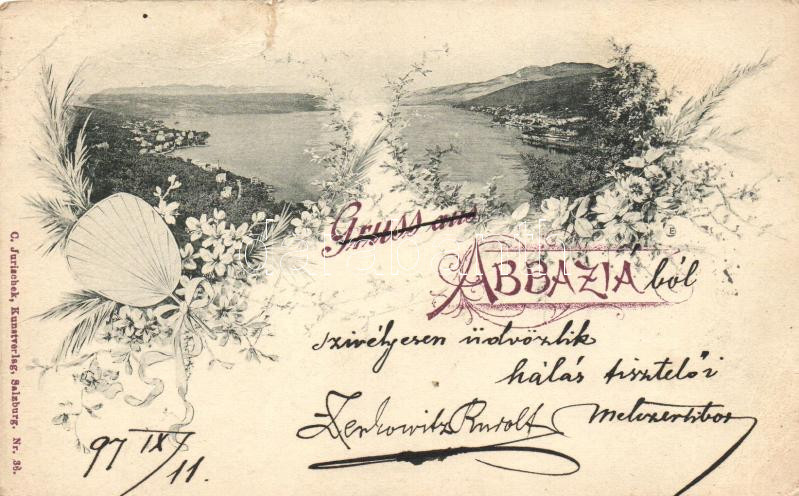 Gruss aus
ABBAZIÁból
szivélyesen üdvözlik
hálás tisztelői
Zerkowitz Rudolf
97 IX/11.
C. Jurischek, Kunstverlag, Salzburg. Nr. 36.